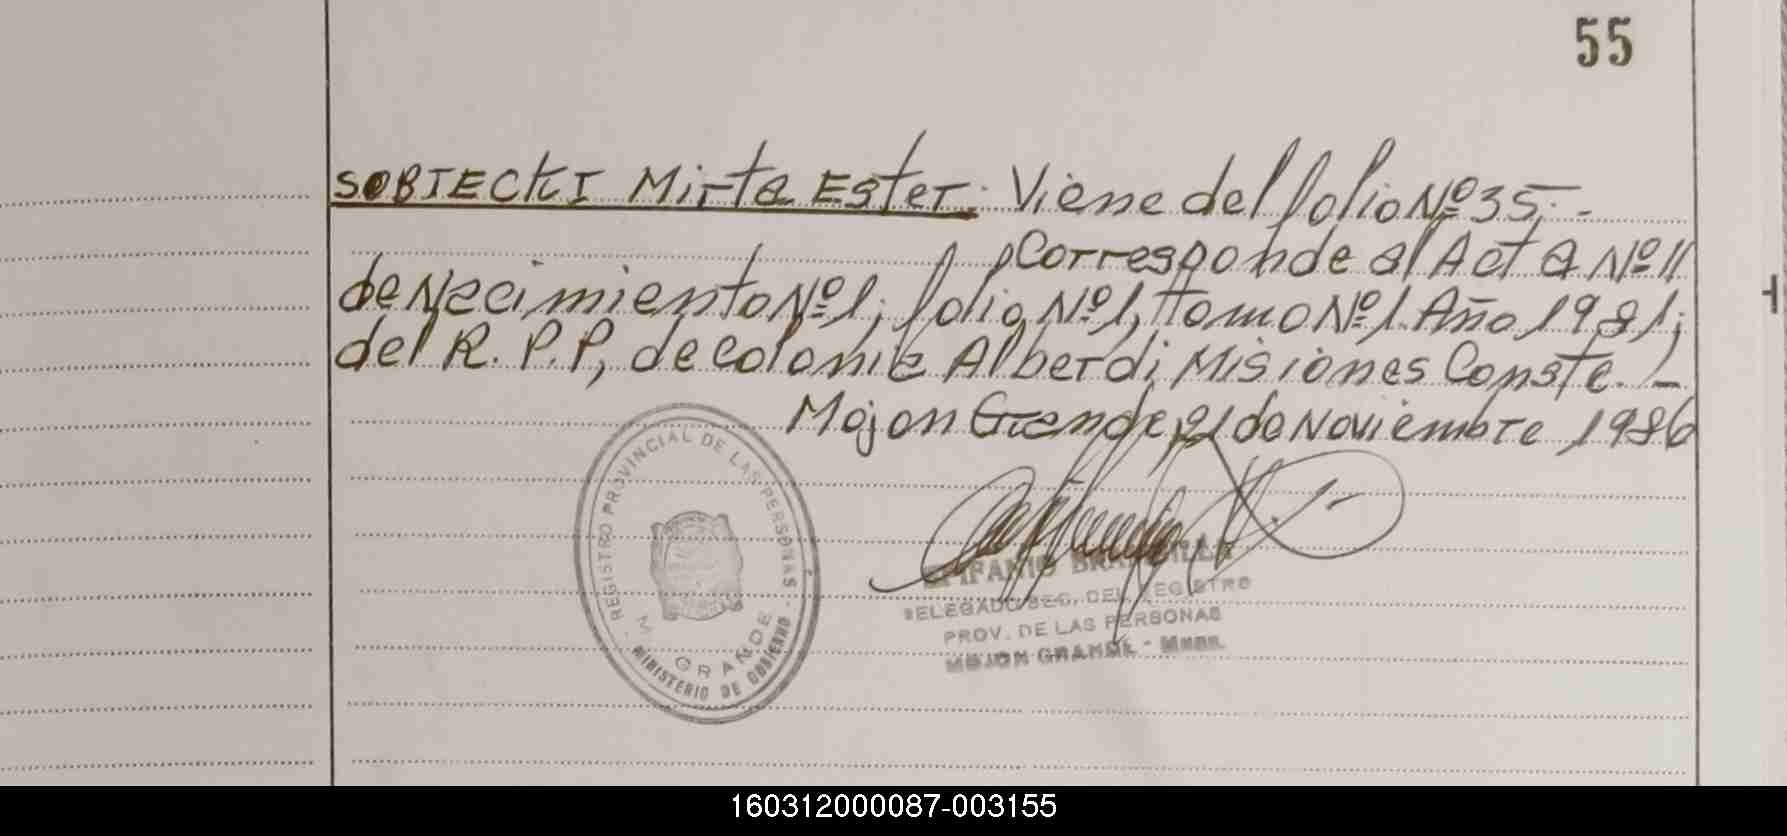 55
SOBIECKI Mirta Ester: Viene del folio Nº 35.-
Corresponde al Acta Nº 11
de Nacimiento Nº 1, folio Nº 1, Tomo Nº 1 Año 1981;
del R. P. P, de Colonia Alberdi, Misiones Conste. -
Mojon Grande, 21 de Noviembre 1986
REGISTRO PROVINCIAL DE LAS PERSONAS -
M. GRANDE
- MINISTERIO DE GOBIERNO
DELEGADO SEC. DEL REGISTRO
PROV. DE LAS PERSONAS
MOJON GRANDE - Mnes.
160312000087-003155